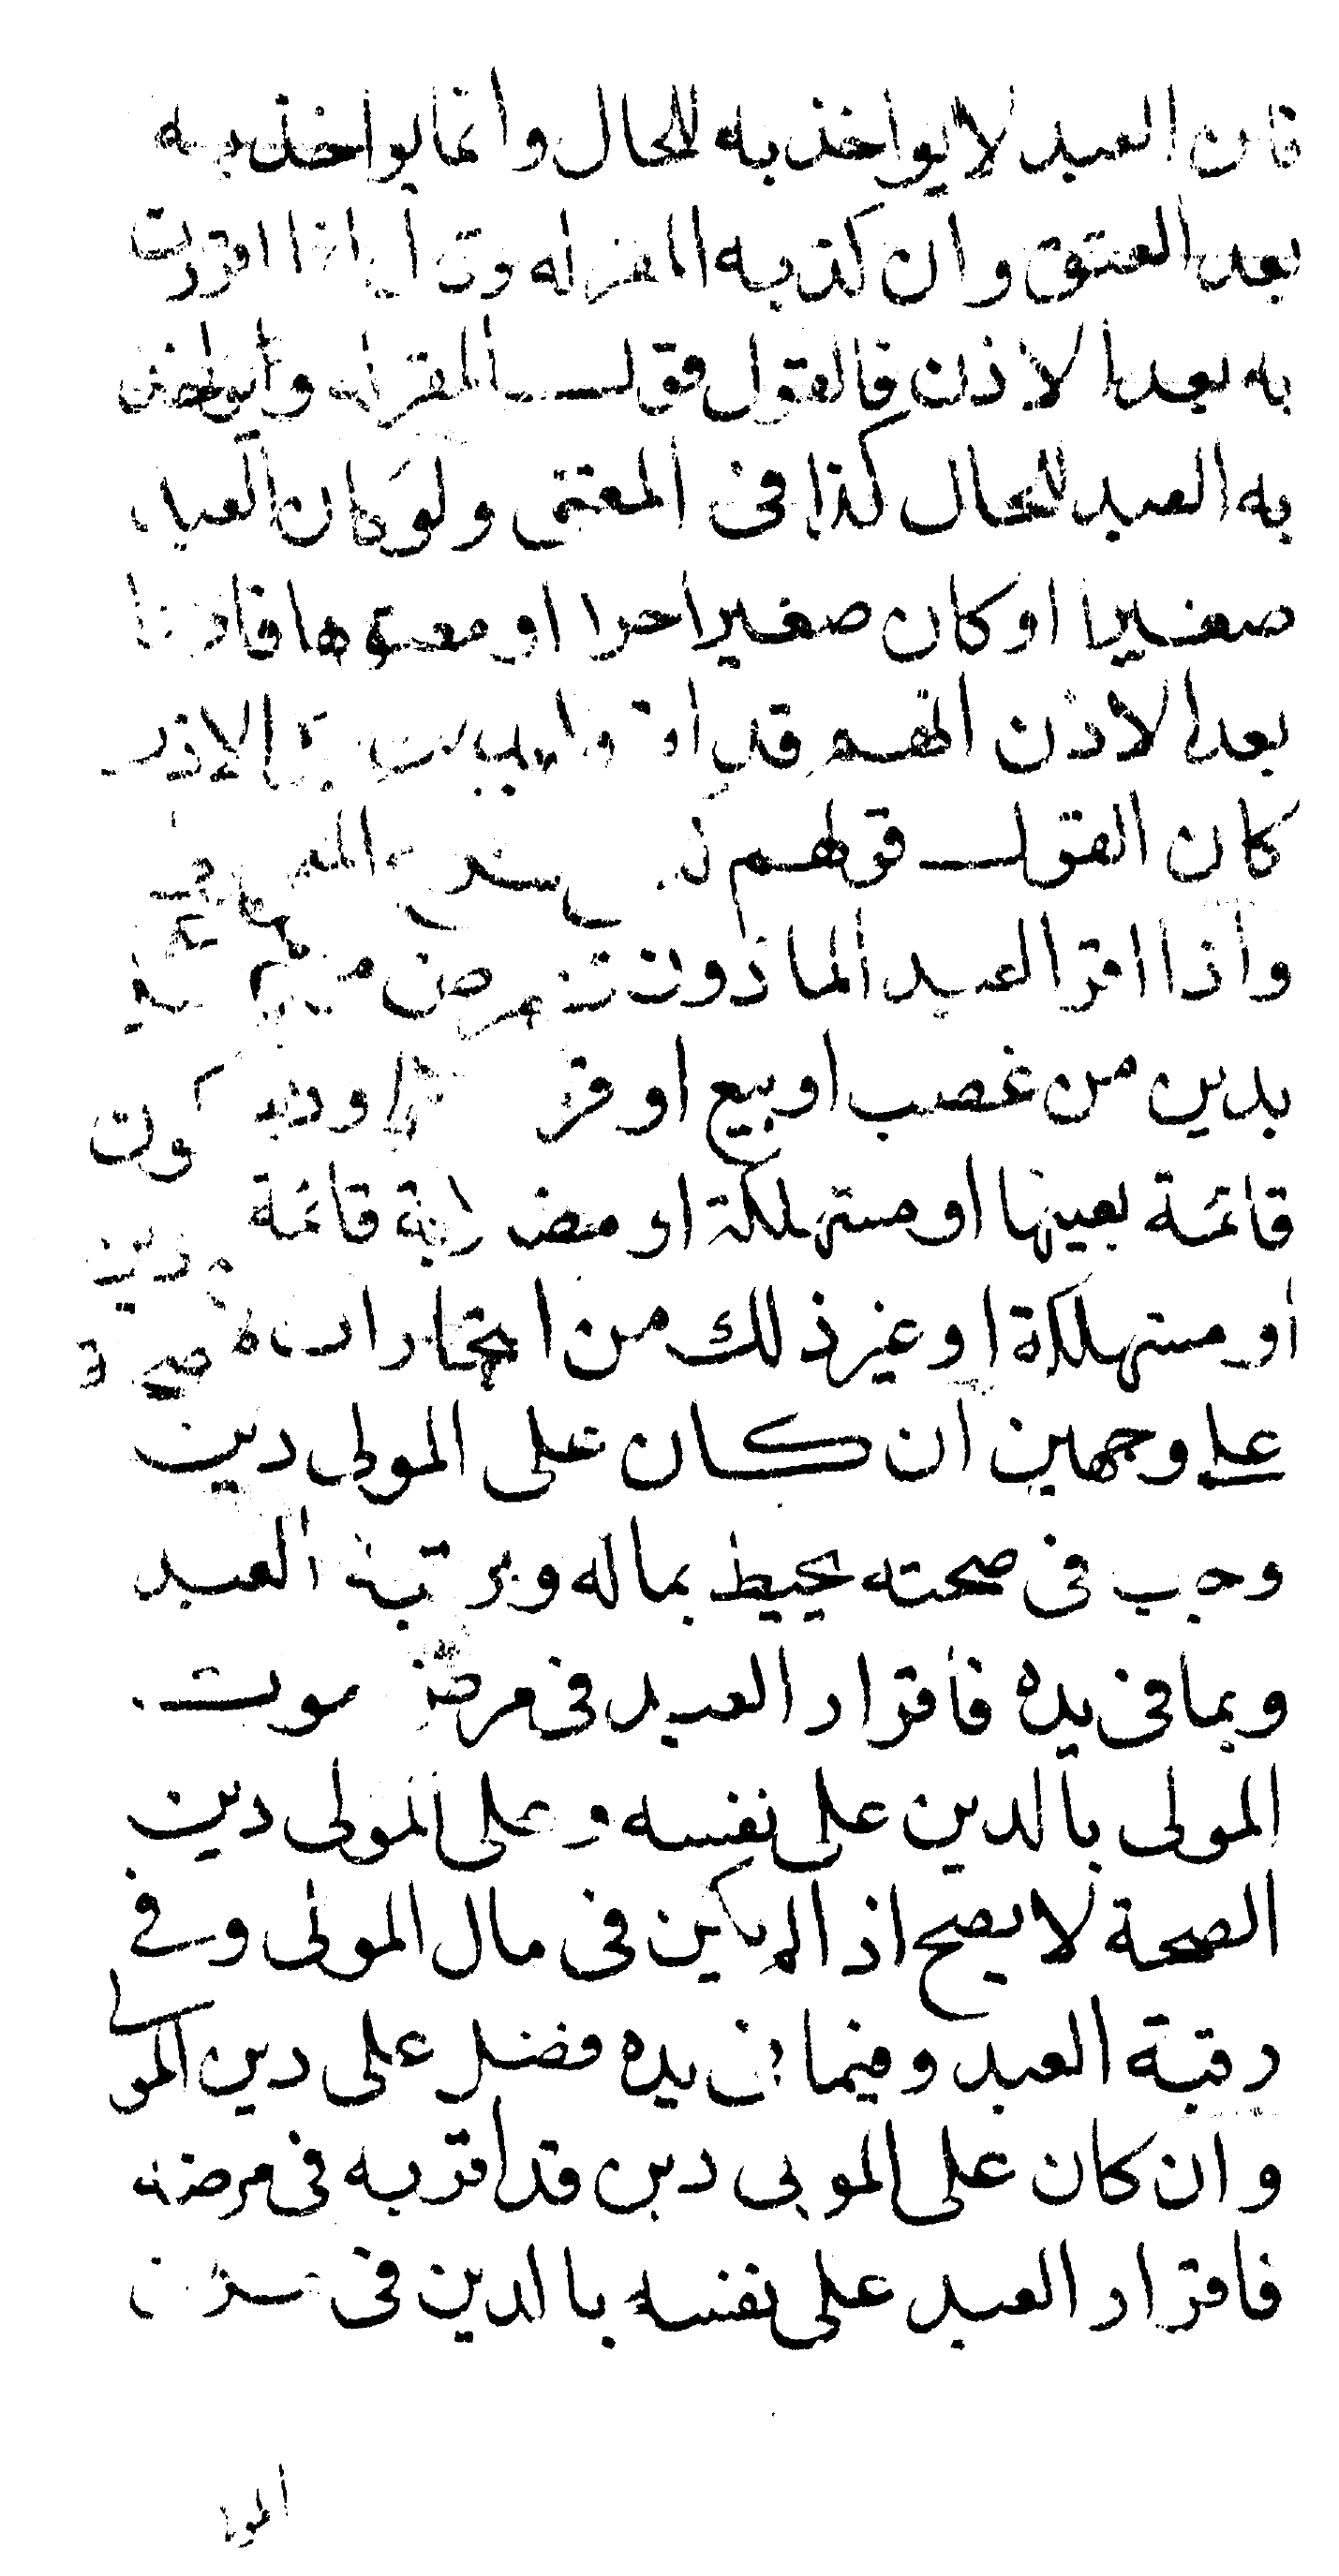 فان العبد لا يواخذ به للحال وانما يواخذ به
بعد العتق وان كذبه المقر له اقررت
به بعد الاذن فالقول قول المقر له ويواخذ
به العبد للحال كذا في المغني ولو كان العبد
صغيرا او كان صغيرا حرا او معتوها فاقروا
بعد الاذن انهم قد الاذن
كان القول قولهم
واذا اقر العبد الماذون في مرض
بدين من غصب او بيع او قرض او وديعة
قائمة بعينها او مستهلكة او مضاربة قائمة
او مستهلكة او غير ذلك من التجارات
على وجهين ان كان على المولى دين
وجب في صحته يحيط بماله وبرقبة العبد
وبما في يده فاقرار العبد في مرض موت
المولى بالدين على نفسه وعلى المولى دين
الصحة لا يصح اذا لم يكن في مال المولى وفي
رقبة العبد وفيما في يده فضل على دين المولى
وان كان على المولى دين قد اقر به في مرضه
فاقرار العبد على نفسه بالدين في